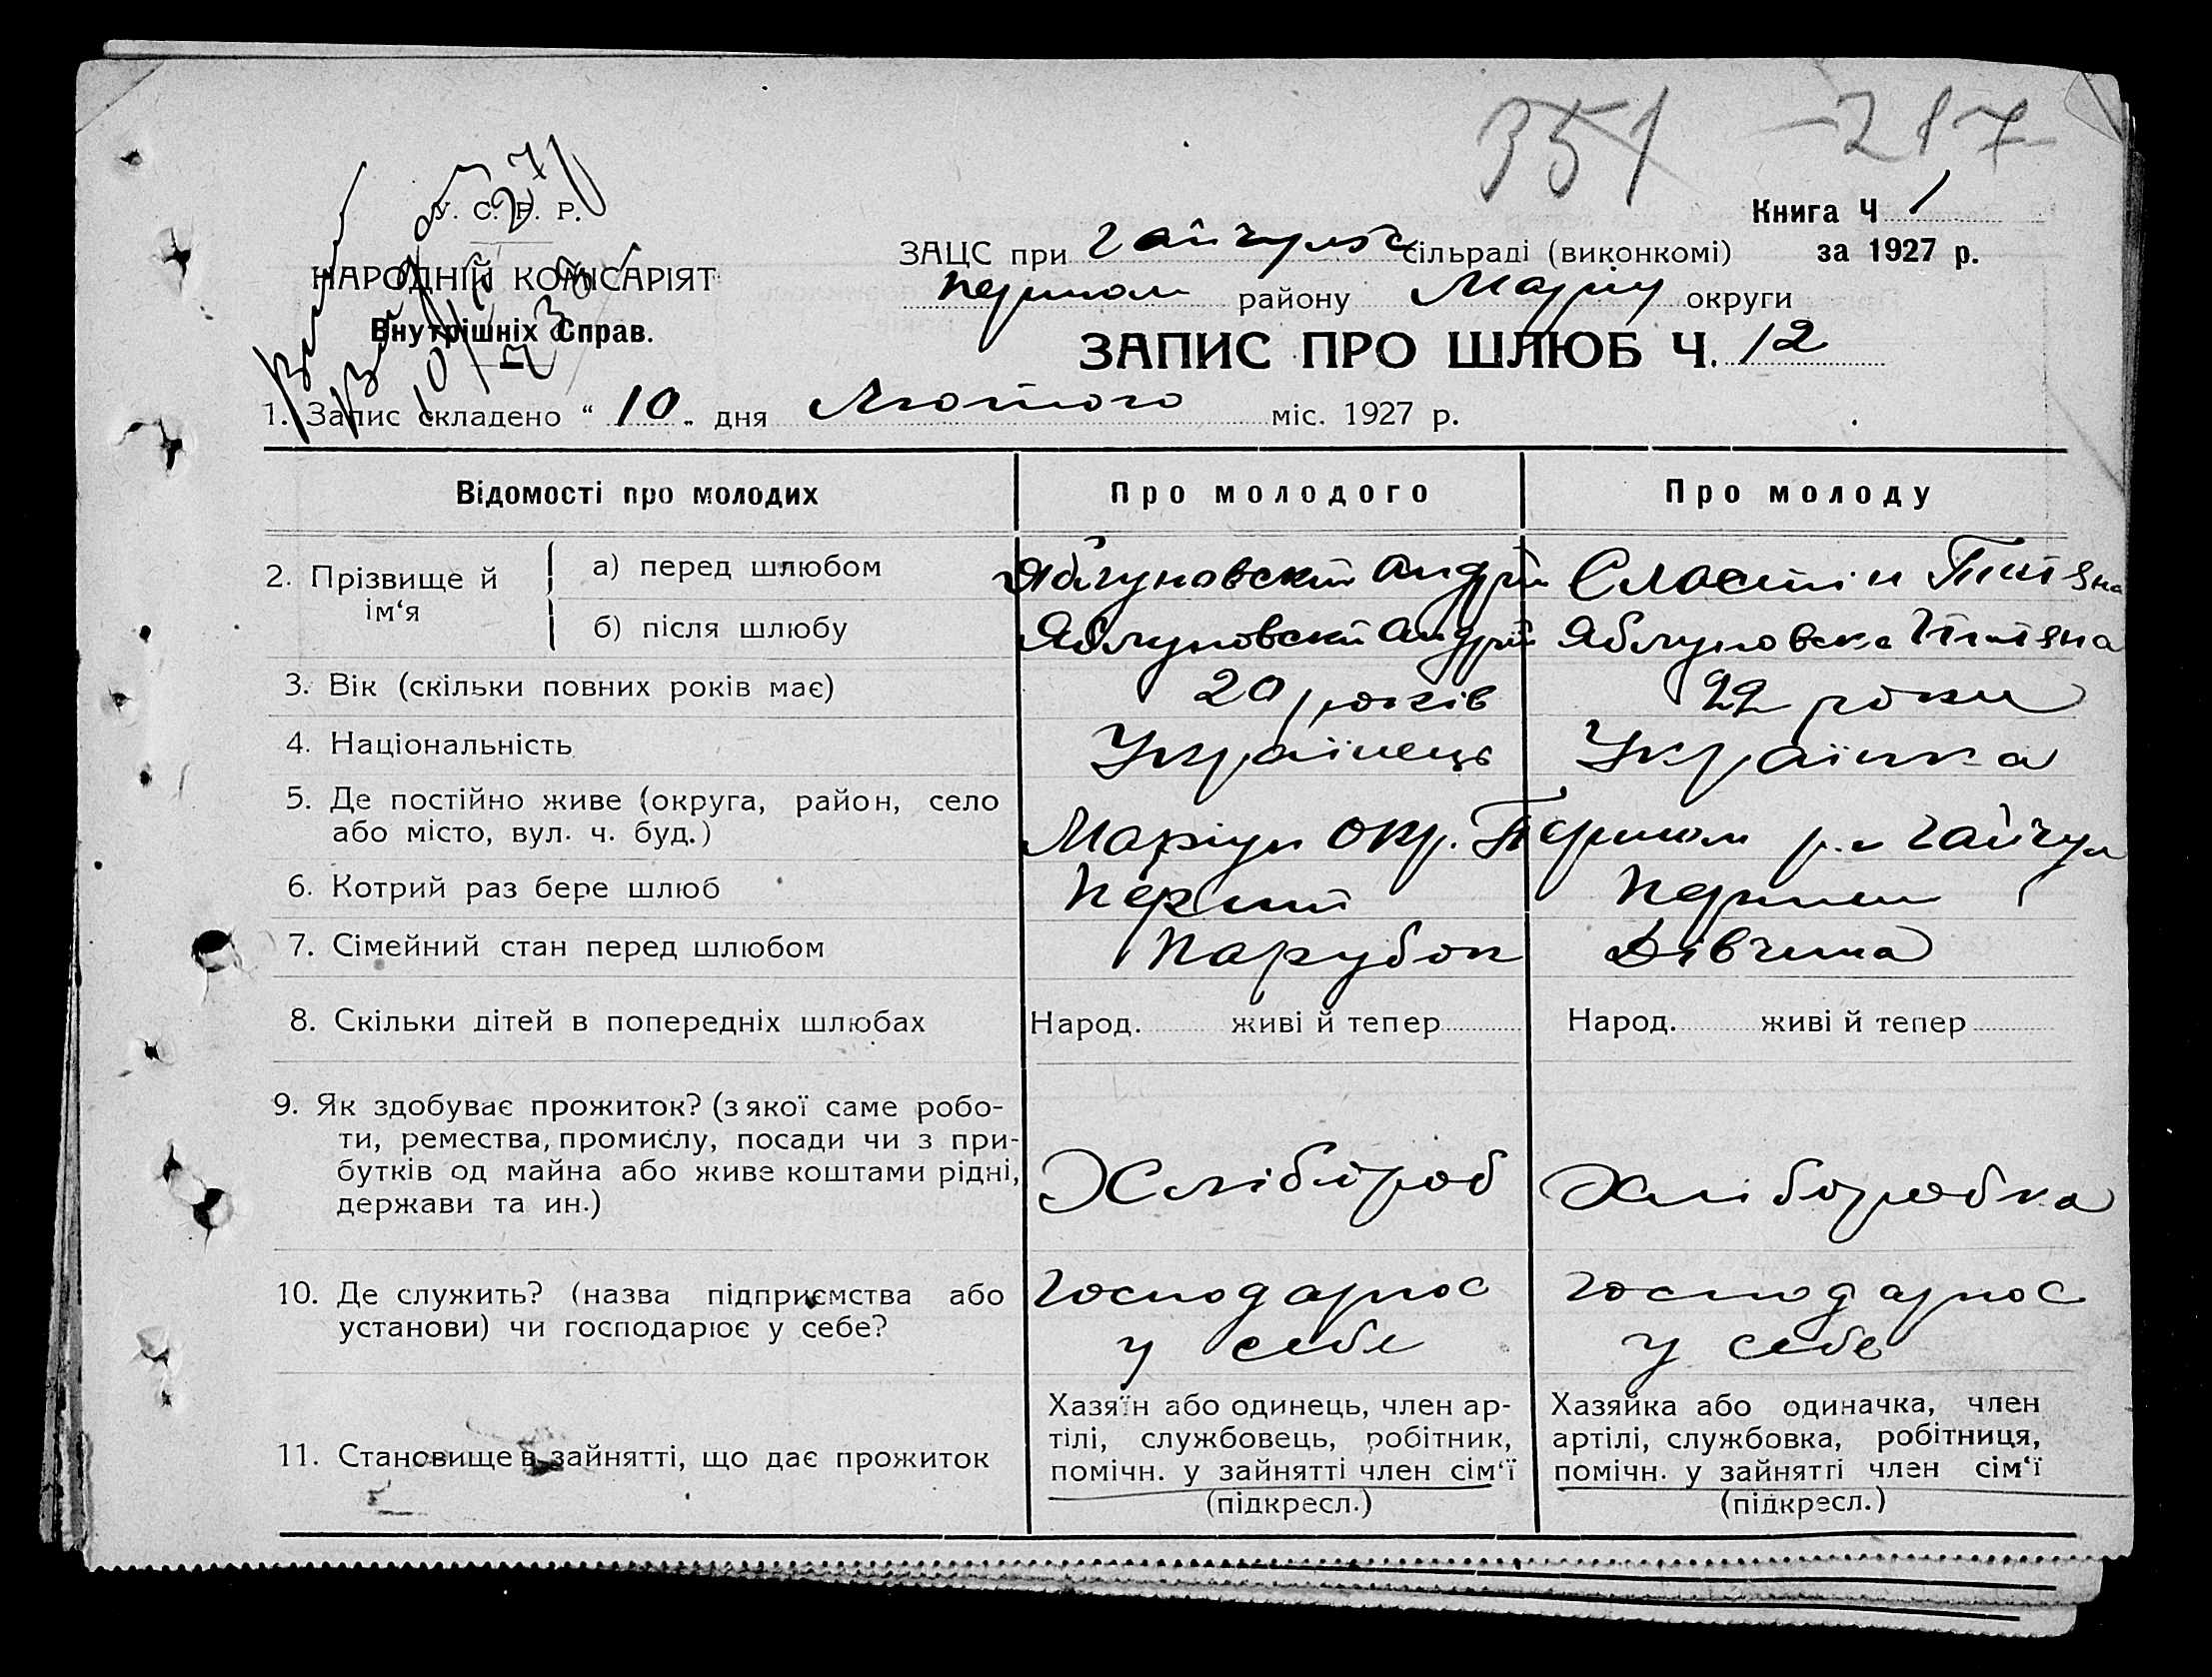 351 -217
У. С. Р. Р.
НАРОДНІЙ КОМІСАРІЯТ
Внутрішніх Справ.
Книга Ч 1
за 1927 р.
ЗАЦС при Гайчульс сільраді (виконкомі)
Першом району Маріу округи
ЗАПИС ПРО ШЛЮБ Ч. 12
1. Запис складено “ 10 „ дня Лютого міс. 1927 р.
Відомості про молодих Про молодого Про молоду
2. Прізвище й ім‘я
а) перед шлюбом Яблуновский Андрій Сластін Титяна
б) після шлюбу Яблуновский Андрій Яблуновска Титяна
3. Вік (скільки повних років має) 20 років 22 роки
4. Національність Українець Українка
5. Де постійно живе (округа, район, село
або місто, вул. ч. буд.) Маріуп окр. Першом р.н Гайчул
6. Котрий раз бере шлюб Перший Перший
7. Сімейний стан перед шлюбом Парубок Дівчина
8. Скільки дітей в попередніх шлюбах Народ. живі й тепер Народ. живі й тепер
9. Як здобуває прожиток? (з якої саме робо-
ти, ремества, промислу, посади чи з при-
бутків од майна або живе коштами рідні,
держави та ин.) Хлібороб Хліборобка
10. Де служить? (назва підприємства або
установи) чи господарює у себе?
Господарює Господарює
у себе у себе
11. Становище в зайнятті, що дає прожиток
Хазяїн або одинець, член ар-
тілі, службовець, робітник,
помічн. у зайнятті член сім‘ї
(підкресл.)
Хазяйка або одиначка, член
артілі, службовка, робітниця,
помічн. у зайнятті член сім‘ї
(підкресл.)